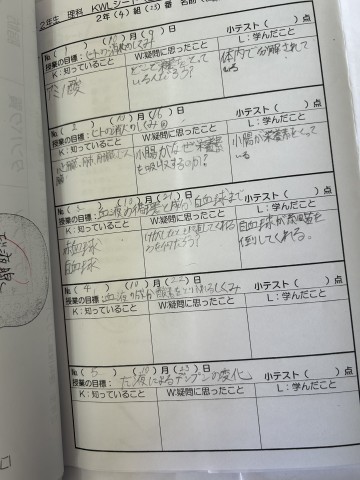 2年生 理科 KWLシート
2年(4)組(25)番 名前
No( 1 ) (10)月(9)日 小テスト( )点
授業の目標:ヒトの消化のしくみ
K:知っていること W:疑問に思ったこと L:学んだこと
アミノ酸
どこで栄養をとっているんだろう?
体内で分解されている
No( ) (10)月(16)日 小テスト( )点
授業の目標:ヒトの消化のしくみ②
K:知っていること W:疑問に思ったこと L:学んだこと
小腸がなぜ栄養素を吸収するのか?
小腸が栄養素をとっている
No( 3 ) (10)月(21)日 小テスト( )点
授業の目標:血液の
白血球まで
K:知っていること W:疑問に思ったこと L:学んだこと
赤血球
白血球
白血球が病原菌を倒してくれる。
No( 4 ) (10)月(22)日 小テスト( )点
授業の目標:血液の成分 酸素をとり入れるしくみ
K:知っていること W:疑問に思ったこと L:学んだこと
No( 5 ) (10)月(23)日 小テスト( )点
授業の目標: だ液によるデンプンの変化
K:知っていること W:疑問に思ったこと L:学んだこと